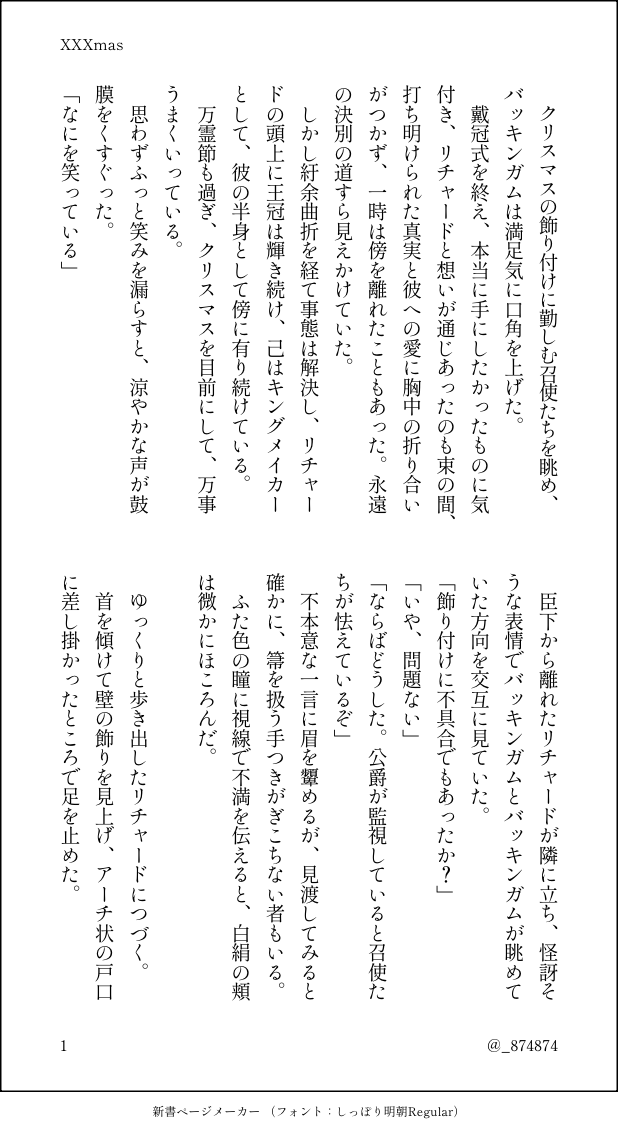 XXXmas
　クリスマスの飾り付けに勤しむ召使たちを眺め、
バッキンガムは満足気に口角を上げた。
　戴冠式を終え、本当に手にしたかったものに気
付き、リチャードと想いが通じあったのも束の間、
打ち明けられた真実と彼への愛に胸中の折り合い
がつかず、一時は傍を離れたこともあった。永遠
の決別の道すら見えかけていた。
　しかし紆余曲折を経て事態は解決し、リチャー
ドの頭上に王冠は輝き続け、己はキングメイカー
として、彼の半身として傍に有り続けている。
　万霊節も過ぎ、クリスマスを目前にして、万事
うまくいっている。
　思わずふっと笑みを漏らすと、涼やかな声が鼓
膜をくすぐった。
「なにを笑っている」
　臣下から離れたリチャードが隣に立ち、怪訝そ
うな表情でバッキンガムとバッキンガムが眺めて
いた方向を交互に見ていた。
「飾り付けに不具合でもあったか？」
「いや、問題ない」
「ならばどうした。公爵が監視していると召使た
ちが怯えているぞ」
　不本意な一言に眉を顰めるが、見渡してみると
確かに、箒を扱う手つきがぎこちない者もいる。
　ふた色の瞳に視線で不満を伝えると、白絹の頬
は微かにほころんだ。
　ゆっくりと歩き出したリチャードにつづく。
　首を傾けて壁の飾りを見上げ、アーチ状の戸口
に差し掛かったところで足を止めた。
1
@_874874
新書ページメーカー （フォント：しっぽり明朝Regular）